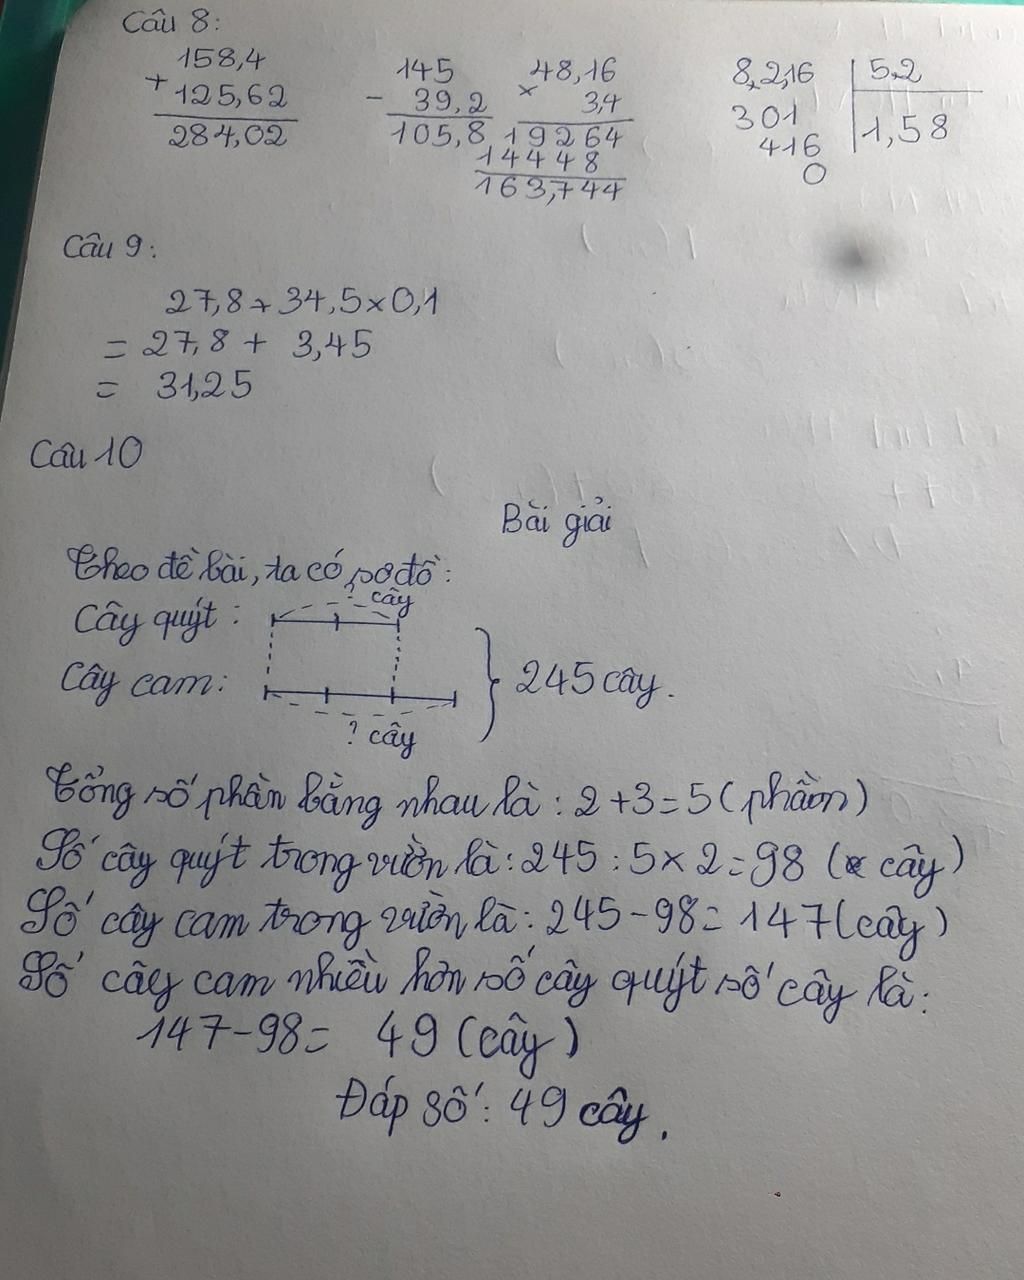 Câu 8:
158,4
+ 125,62
284,02
145
- 39,2
105,8
48,16
× 3,4
19264
14448
163,744
8,2,16 5,2
301 1,58
416
0
Câu 9:
27,8 + 34,5 × 0,1
= 27,8 + 3,45
= 31,25
Câu 10
Bài giải
Theo đề bài, ta có sơ đồ:
? cây
Cây quýt:
Cây cam: 245 cây.
? cây
Tổng số phần bằng nhau là: 2 + 3 = 5 (phần)
Số cây quýt trong vườn là: 245 : 5 × 2 = 98 (cây)
Số cây cam trong vườn là: 245 - 98 = 147 (cây)
Số cây cam nhiều hơn số cây quýt số cây là:
147 - 98 = 49 (cây)
Đáp số: 49 cây.